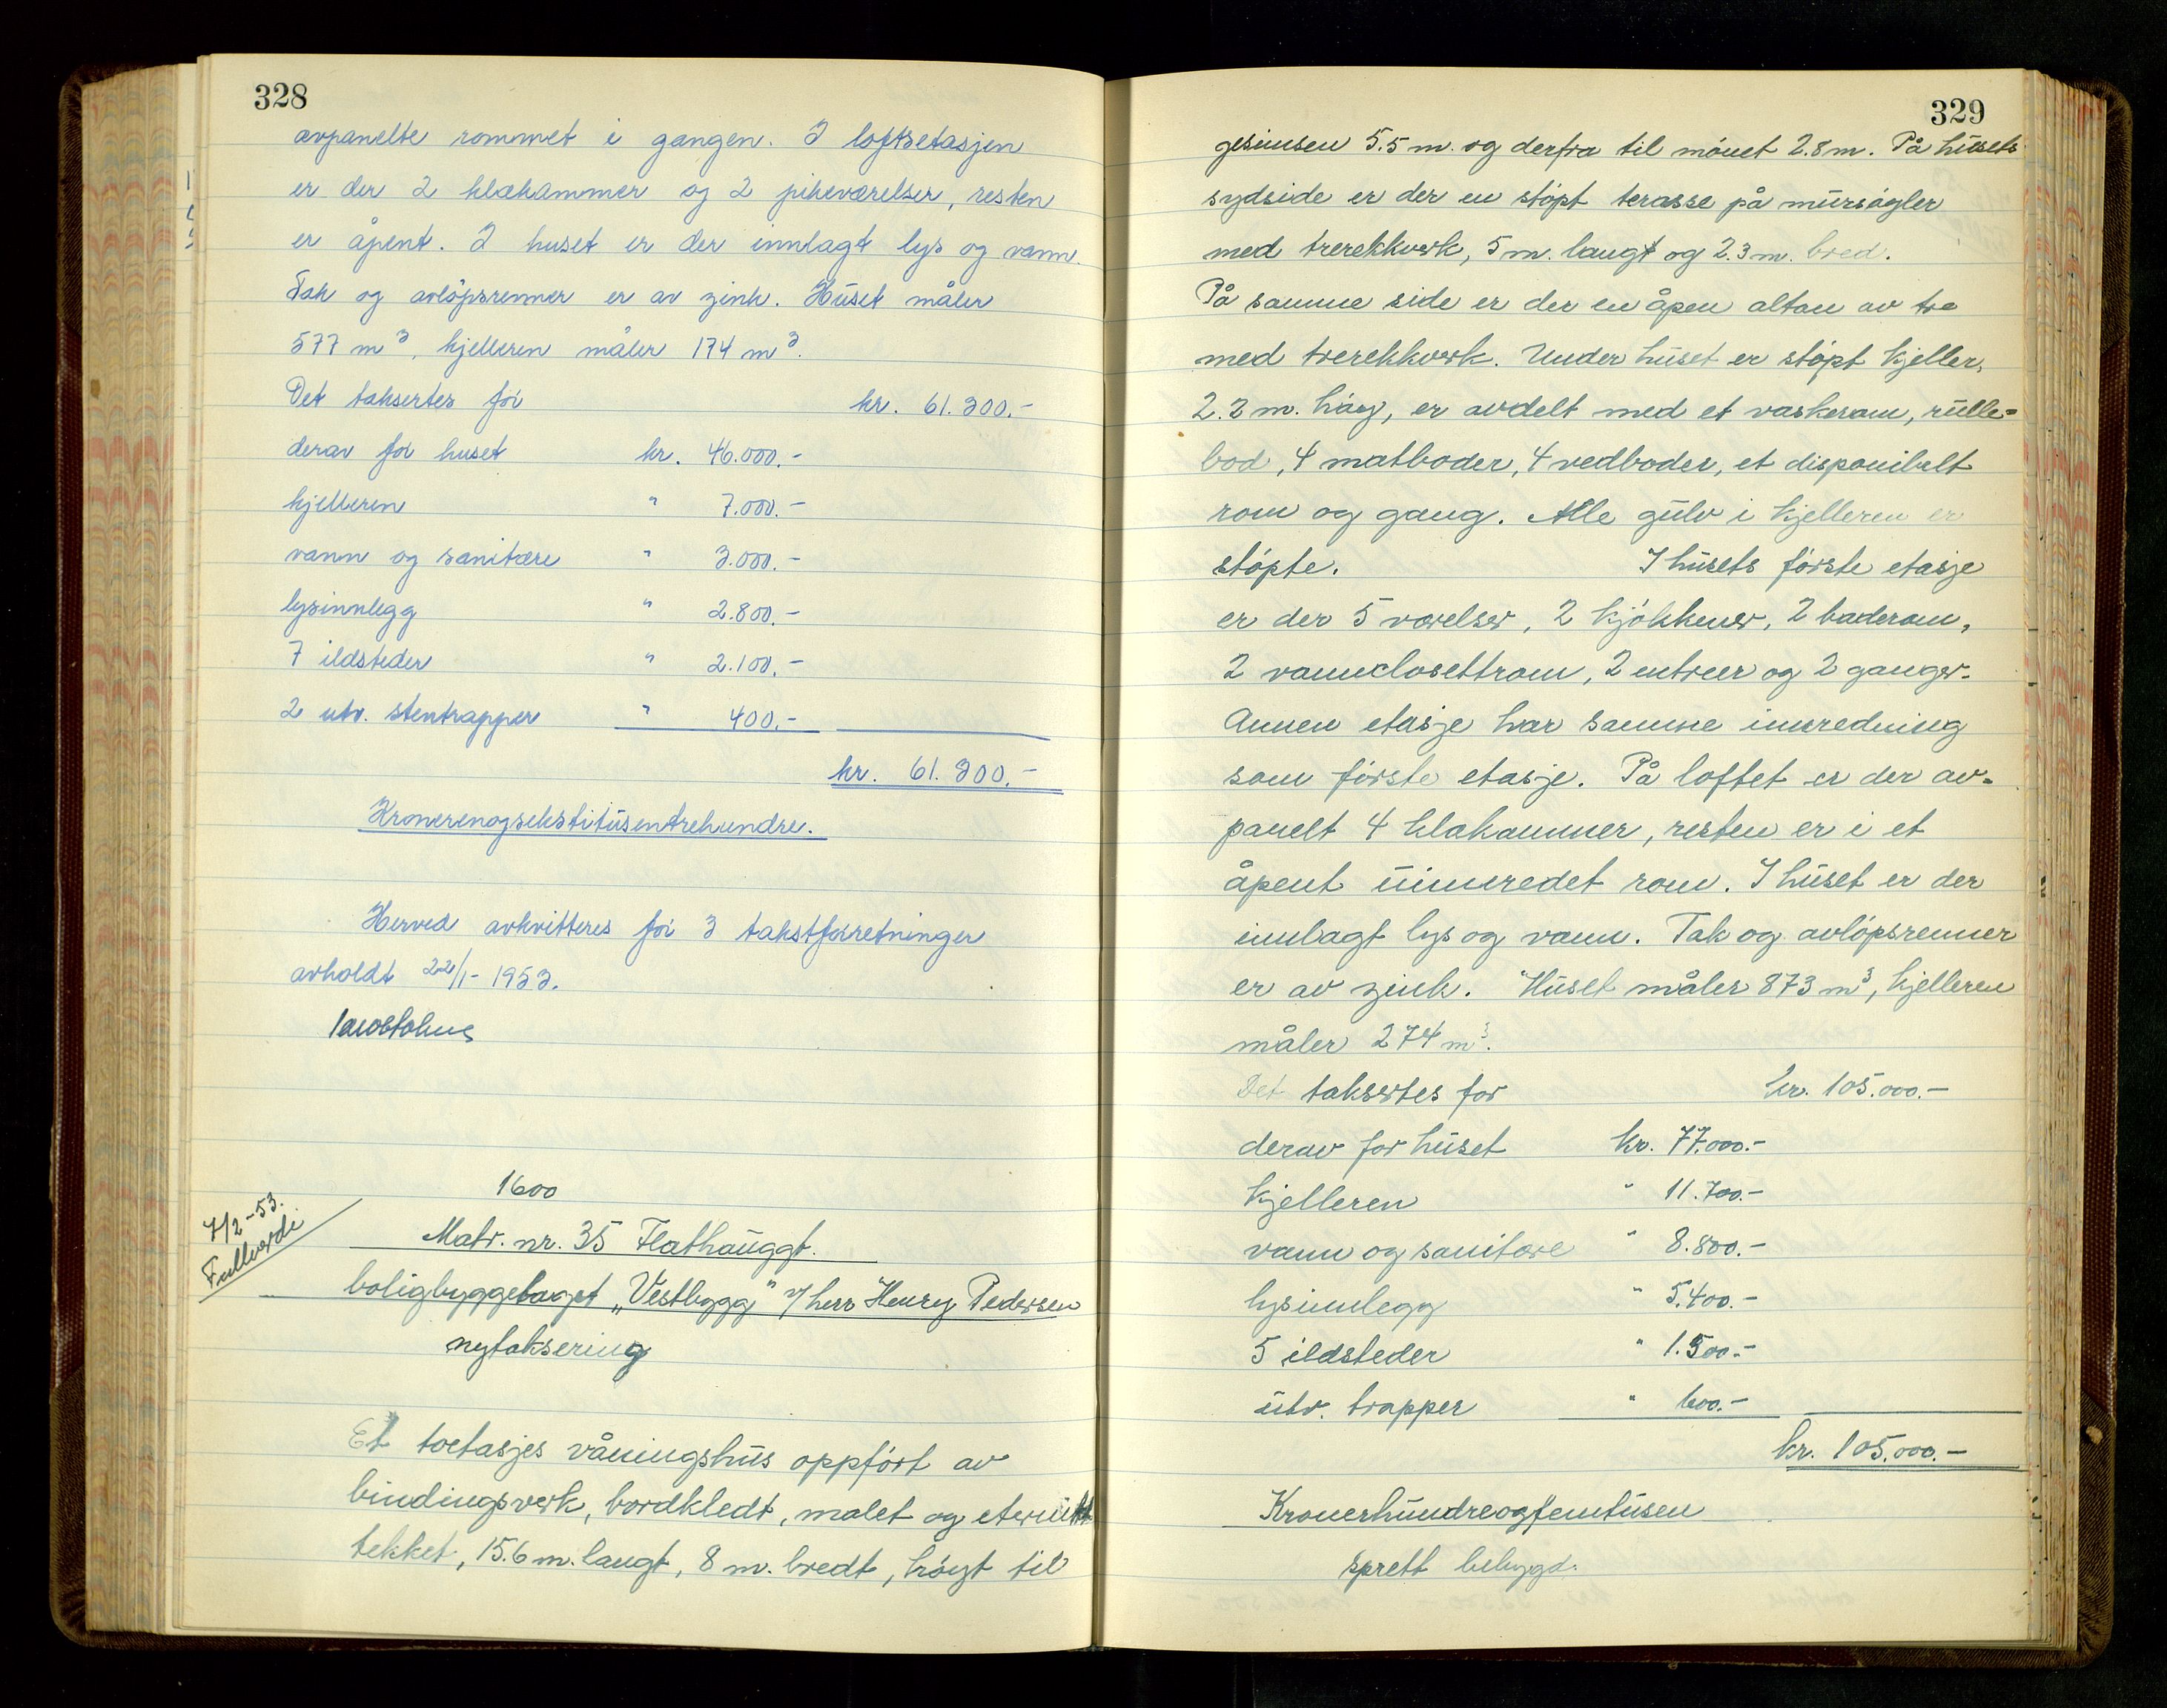 328
avpanelte rommet i gangen. I loftsetasjen
er der 2 klekammer og 2 pikeværelser, resten
er åpent. I huset er der innlagt lys og vann.
Tak og avlöpsrenner er av zink. Huset måler
577 m³, kjelleren måler 174 m³.
Det taksertes for kr. 61.300.-
derav for huset kr. 46.000.-
kjelleren " 7.000.-
vann og sanitære " 3.000.-
lysinnlegg " 2.800.-
7 ildsteder " 2.100.-
2 utv. stentrapper " 400.-
kr. 61.300.-
Kronerenogsekstitusentrehundre.
Herved avkvitteres for 3 takstforretninger
avholdt 22/1-1953.
1600
7/2-53.
Fullverdi
Matr. nr. 35 Flathauggt.
boligbyggelaget „Vestbygg" v/ herr Henry Pedersen
nytaksering
Et toetasjes våningshus oppfört av
bindingsverk, bordkledt, malet og eternitt
tekket, 15.6 m. langt, 8 m. bredt, höyt til
329
gesimsen 5.5 m. og derfra til mönet 2.8 m. På husets
sydside er der en stöpt terasse på mursögler
med trerekkverk, 5 m. langt og 2.3 m. bred.
På samme side er der en åpen altan av tre
med trerekkverk. Under huset er stöpt kjeller,
2.2 m. höy, er avdelt med et vaskerom, rulle=
bod, 4 matboder, 4 vedboder, et disponibelt
rom og gang. Alle gulv i kjelleren er
stöpte. I husets förste etasje
er der 5 værelser, 2 kjökkener, 2 baderom,
2 vannclosettrom, 2 entreer og 2 ganger.
Annen etasje har samme innredning
som förste etasje. På loftet er der av=
panelt 4 klekammer, resten er i et
åpent uinnredet rom. I huset er der
innlagt lys og vann. Tak og avlöpsrenner
er av zink. Huset måler 873 m³, kjelleren
måler 274 m³.
Det taksertes for kr. 105.000.-
derav for huset kr. 77.000.-
kjelleren " 11.700.-
vann og sanitære " 8.800.-
lysinnlegg " 5.400.-
5 ildsteder " 1.500.-
utv. trapper " 600.-
kr. 105.000.-
Kronerhundreogfemtusen
sprett bebygd.